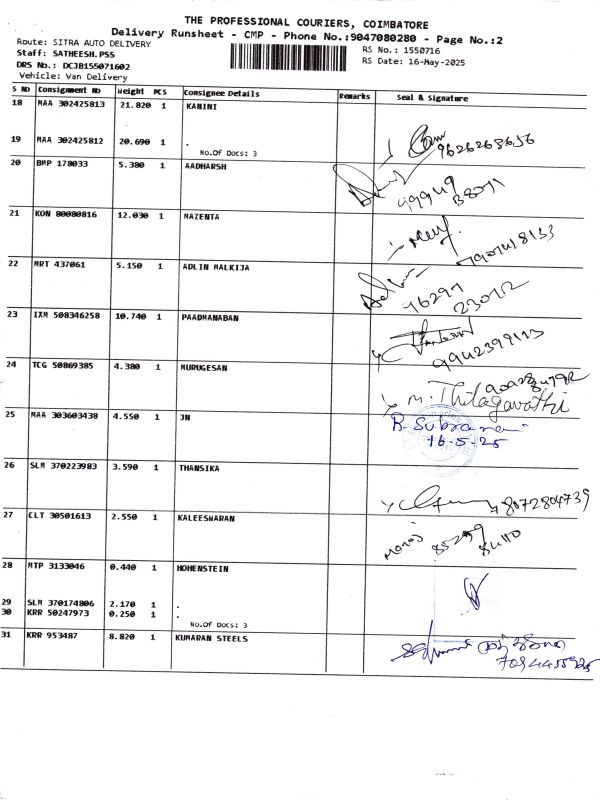 THE PROFESSIONAL COURIERS, COIMBATORE
Delivery Runsheet - CMP - Phone No.:9047080280 - Page No.:2
Route: SITRA AUTO DELIVERY
Staff: SATHEESH.PSS
DRS No.: DCJB155071602
Vehicle: Van Delivery
RS No.: 1550716
RS Date: 16-May-2025
S No Consignment No Weight PCS Consignee Details Remarks Seal & Signature
18 MAA 302425813 21.820 1 KANINI
19 MAA 302425812 20.690 1 .
No.Of Docs: 3
9626263656
20 BMP 178033 5.380 1 AADHARSH
99949
21 KON 80080816 12.030 1 MAZENTA
22 MRT 437061 5.150 1 ADLIN MALKIJA
96297
23012
23 IXM 508346258 10.740 1 PAADMANABAN
9942399113
24 TCG 50869385 4.380 1 MURUGESAN
M. Thilagavathi
25 MAA 303603438 4.550 1 JN
16-5-25
26 SLM 370223983 3.590 1 THANSIKA
8072804739
27 CLT 30501613 2.550 1 KALEESWARAN
28 MTP 3133046 0.440 1 HOHENSTEIN
29 SLM 370174806 2.170 1 .
30 KRR 50247973 0.250 1 .
No.Of Docs: 3
31 KRR 953487 8.820 1 KUMARAN STEELS